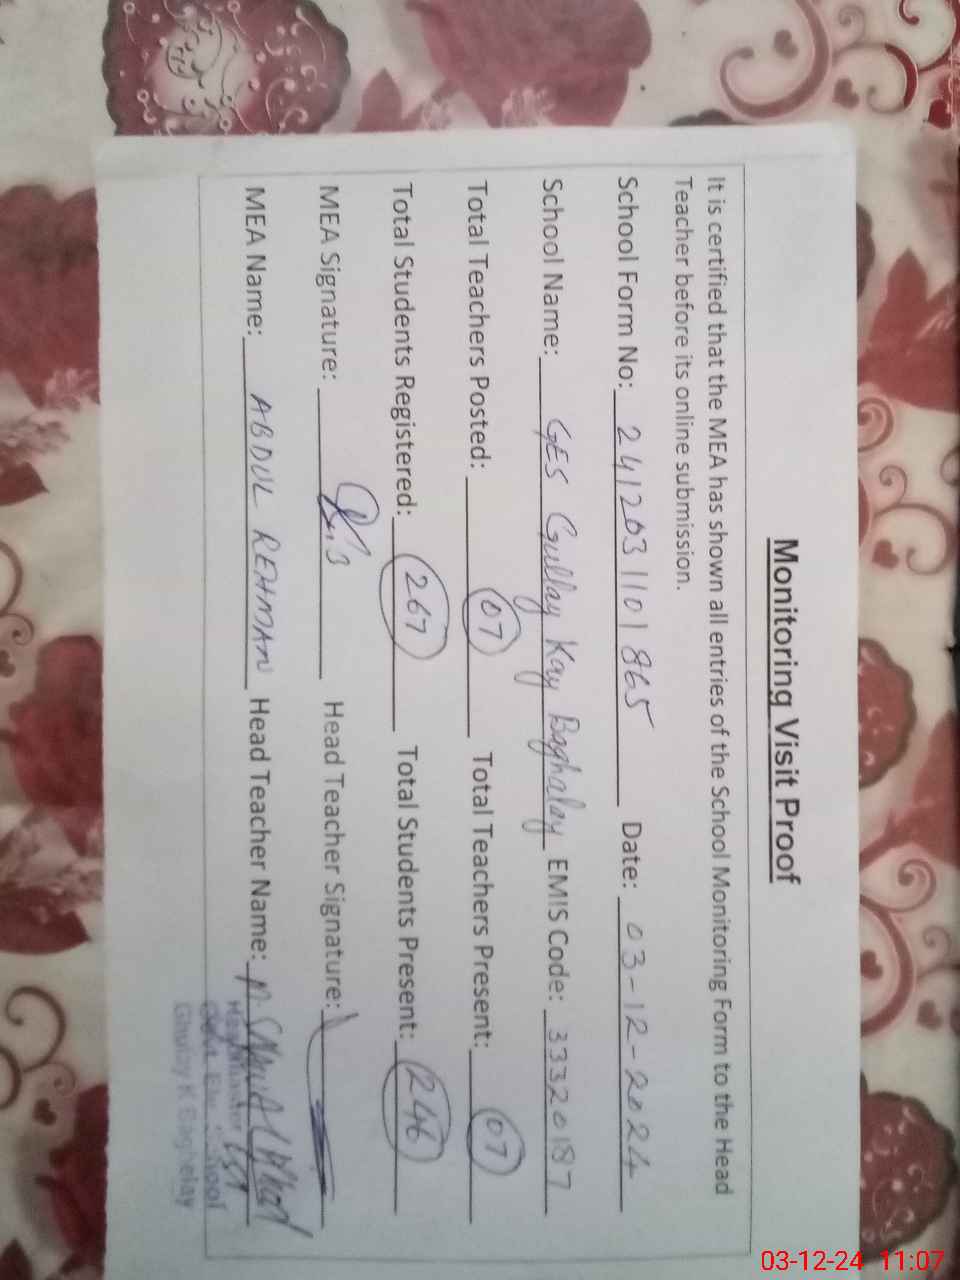 Monitoring Visit Proof
It is certified that the MEA has shown all entries of the School Monitoring Form to the Head
Teacher before its online submission.
School Form No: 241203 1101 865 Date: 03-12-2024
School Name: GES Gullay Kay Baghalay EMIS Code: 33320187
Total Teachers Posted: 07 Total Teachers Present: 07
Total Students Registered: 267 Total Students Present: 246
MEA Signature: Head Teacher Signature:
MEA Name: ABDUL REHMAN Head Teacher Name:
Headmaster
School
Ghulay K Baghelay
03-12-24 11:07